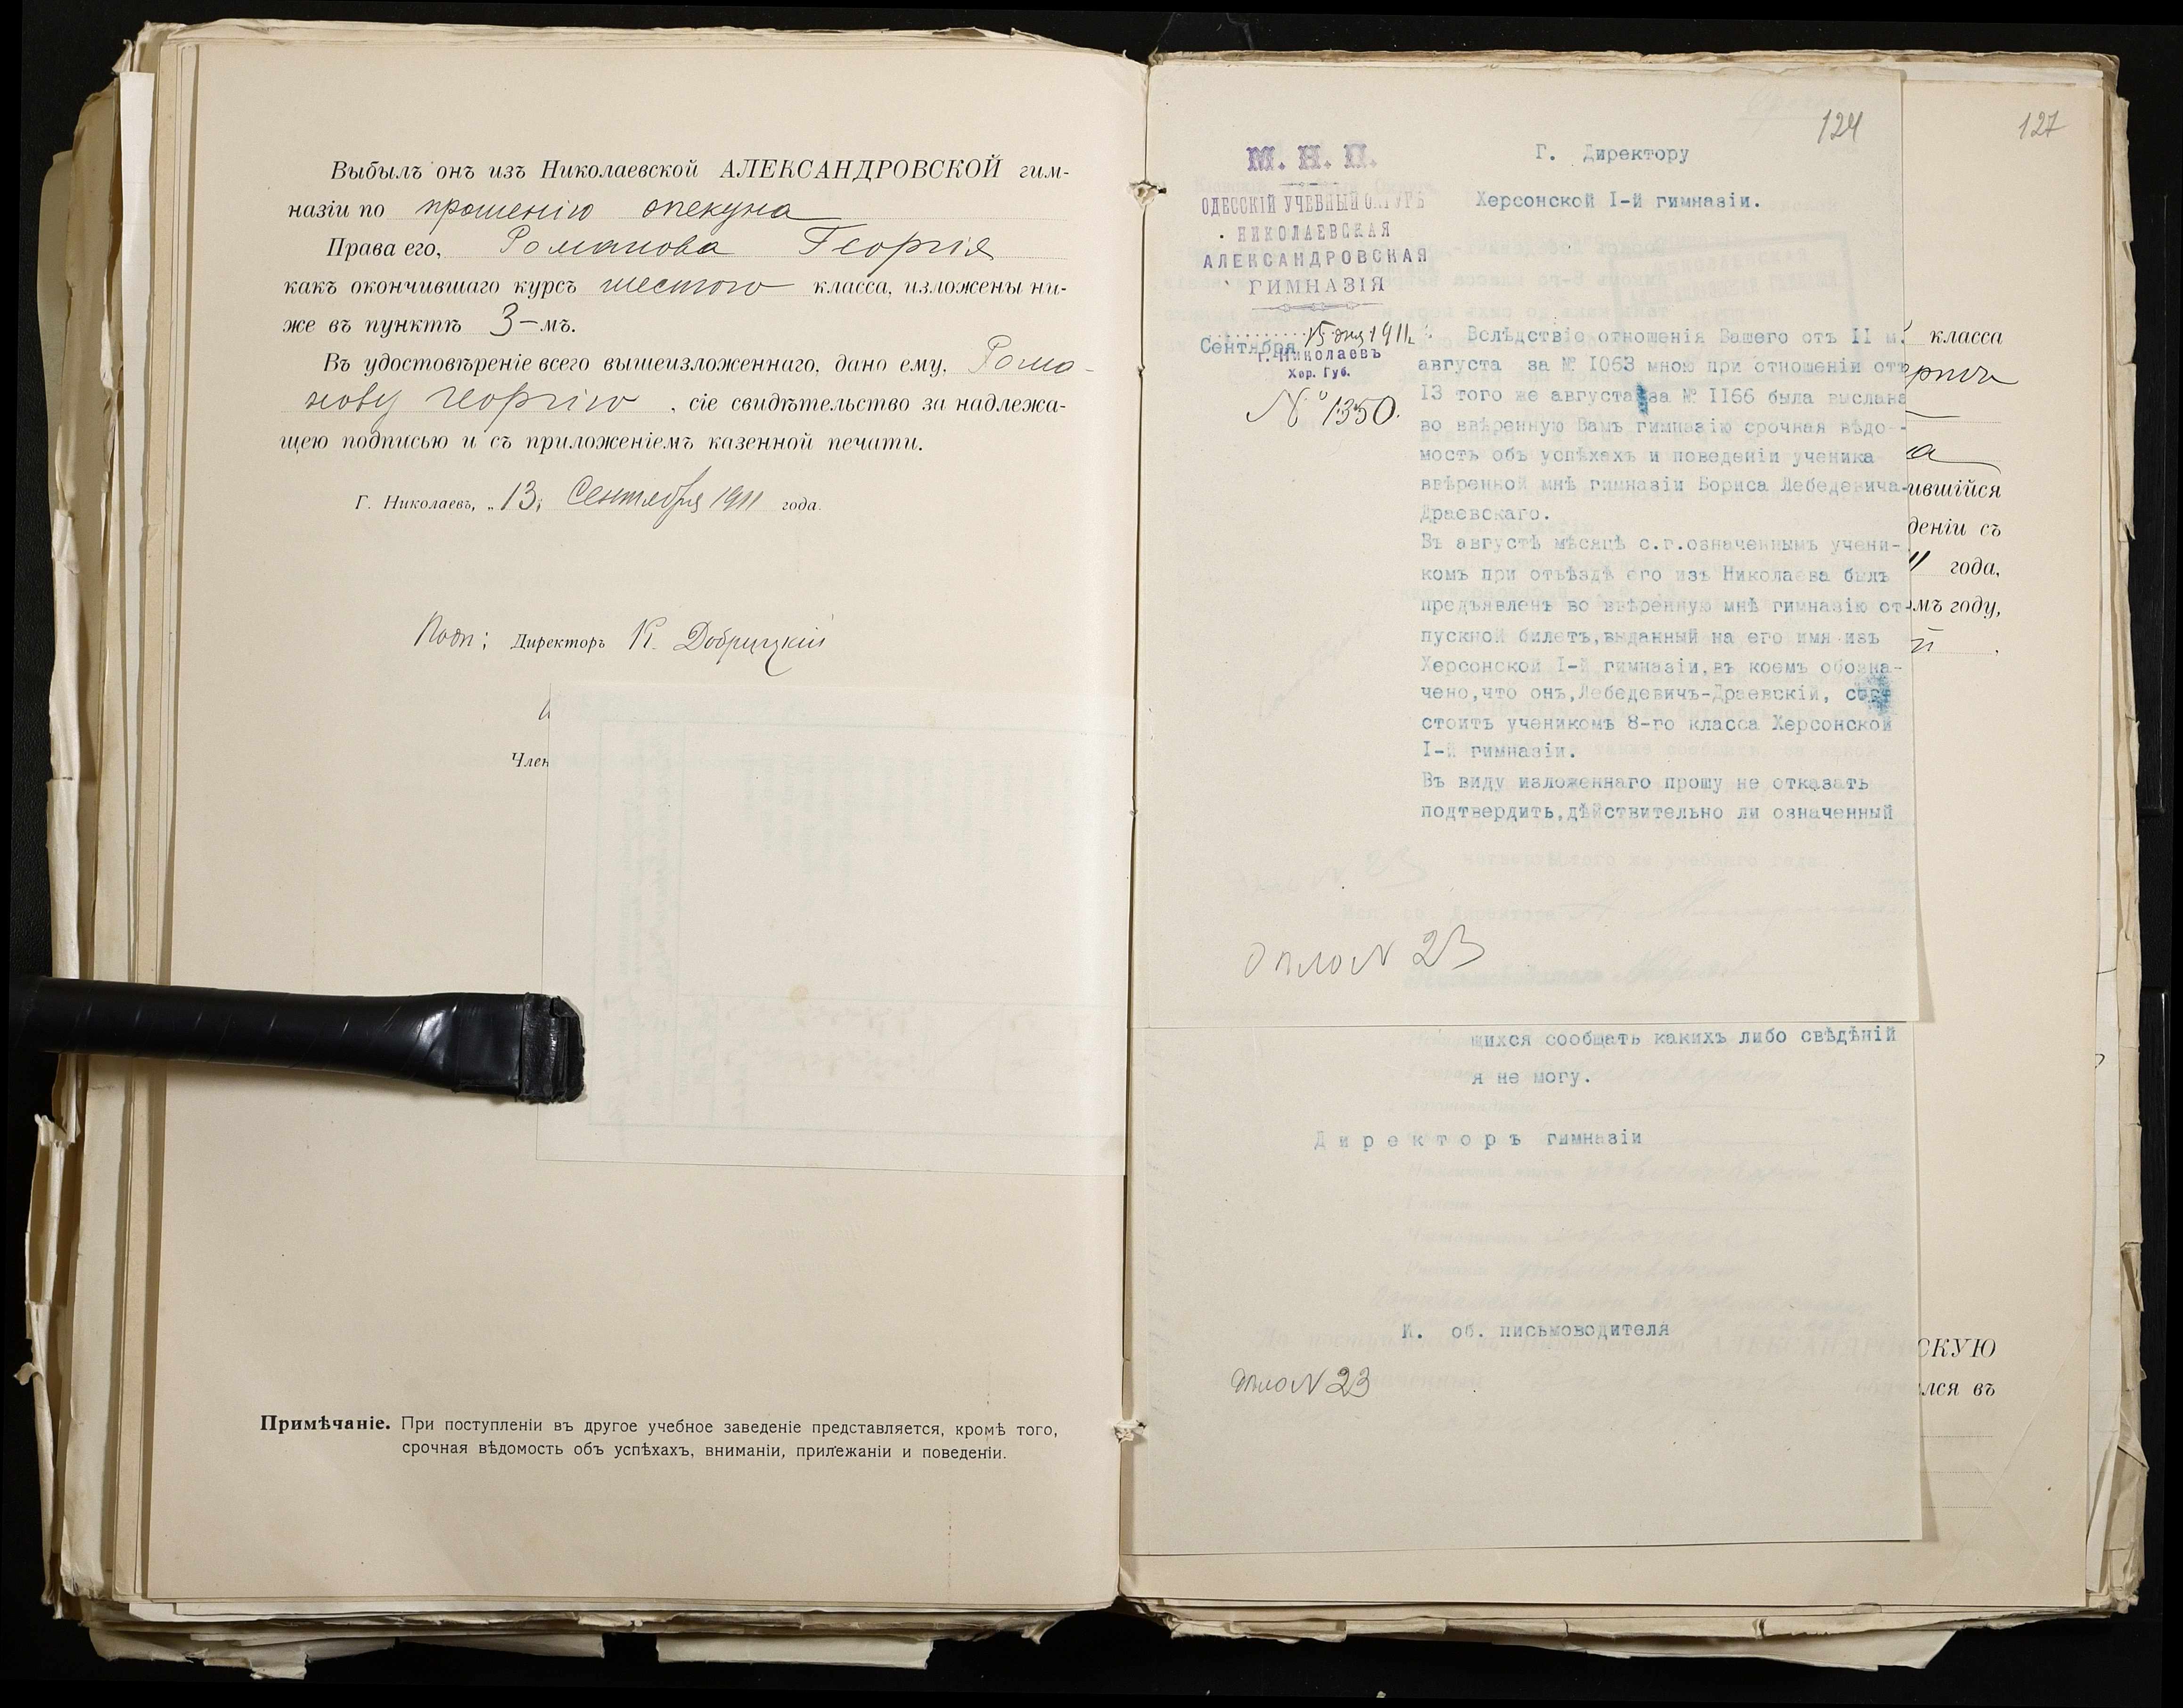 Выбылъ онъ изъ Николаевской АЛЕКСАНДРОВСКОЙ гим-
назіи по прошенію опекуна
Права его, Романова Георгія
какъ окончившаго курсъ шестого класса, изложены ни-
же въ пунктѣ 3-мъ.
Въ удостовѣреніе всего вышеизложеннаго, дано ему, Рома-
нову Георгію, сіе свидѣтельство за надлежа-
щею подписью и съ приложеніемъ казенной печати.
Г. Николаевъ, „13„ Сентября 1911 года.
Подп: Директоръ К. Добрицкій
Член
Примѣчаніе. При поступленіи въ другое учебное заведеніе представляется, кромѣ того,
срочная вѣдомость объ успѣхахъ, вниманіи, прилежаніи и поведеніи.
124
127
М. Н. П.
ОДЕССКІЙ УЧЕБНЫЙ ОКРУГЪ
НИКОЛАЕВСКАЯ
АЛЕКСАНДРОВСКАЯ
ГИМНАЗІЯ
Сентября 15 дня 1911 г.
г. Николаевъ
Хер. Губ.
№ 1350.
Г. Директору
Херсонской I-й гимназіи.
Вслѣдствіе отношенія Вашего отъ II м.
августа за № I063 мною при отношеніи отъ
I3 того же августа за № II66 была выслана
во ввѣренную Вамъ гимназію срочная вѣдо-
мость объ успѣхахъ и поведеніи ученика
ввѣренной мнѣ гимназіи Бориса Лебедевича-
Драевскаго.
Въ августѣ мѣсяцѣ с.г.означеннымъ учени-
комъ при отъѣздѣ его изъ Николаева былъ
предъявленъ во ввѣренную мнѣ гимназію от-
пускной билетъ,выданный на его имя изъ
Херсонской I-й гимназіи,въ коемъ обозна-
чено,что онъ,Лебедевичъ-Драевскій, со
стоитъ ученикомъ 8-го класса Херсонской
I-й гимназіи.
Въ виду изложеннаго прошу не отказать
подтвердить,дѣйствительно ли означенный
дѣло № 23
щихся сообщать какихъ либо свѣдѣній
я не могу.
Директоръ гимназіи
И. об. письмоводителя
дѣло № 23
класса
ившійся
деніи съ
11 года,
мъ году,
й
СКУЮ
лся въ